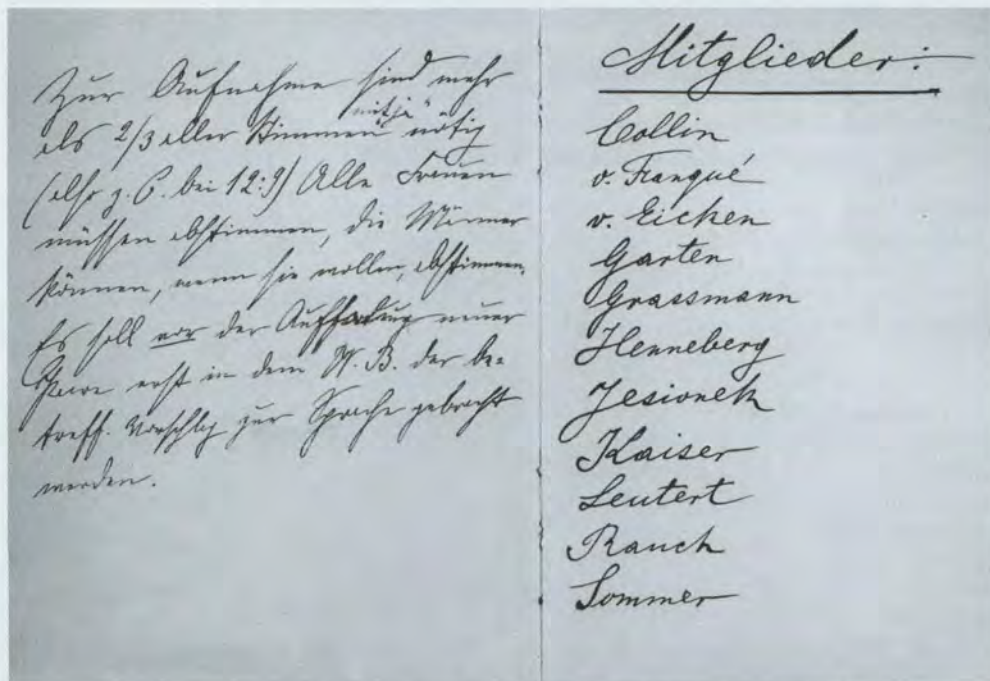 Zur Aufnahme sind mehr
als 2/3 aller Stimmen mit „ja" nötig
(also z. B. bei 12:9) Alle Frauen
müssen abstimmen, die Männer
können, wenn sie wollen, abstimmen.
Es soll vor der Aufforderung neuer
Paare erst in dem W. B. der be-
treff. Vorschlag zur Sprache gebracht
werden.
Mitglieder:
Collin
v. Franqué
v. Eicken
Garten
Grassmann
Henneberg
Jesionek
Kaiser
Leutert
Rauch
Sommer